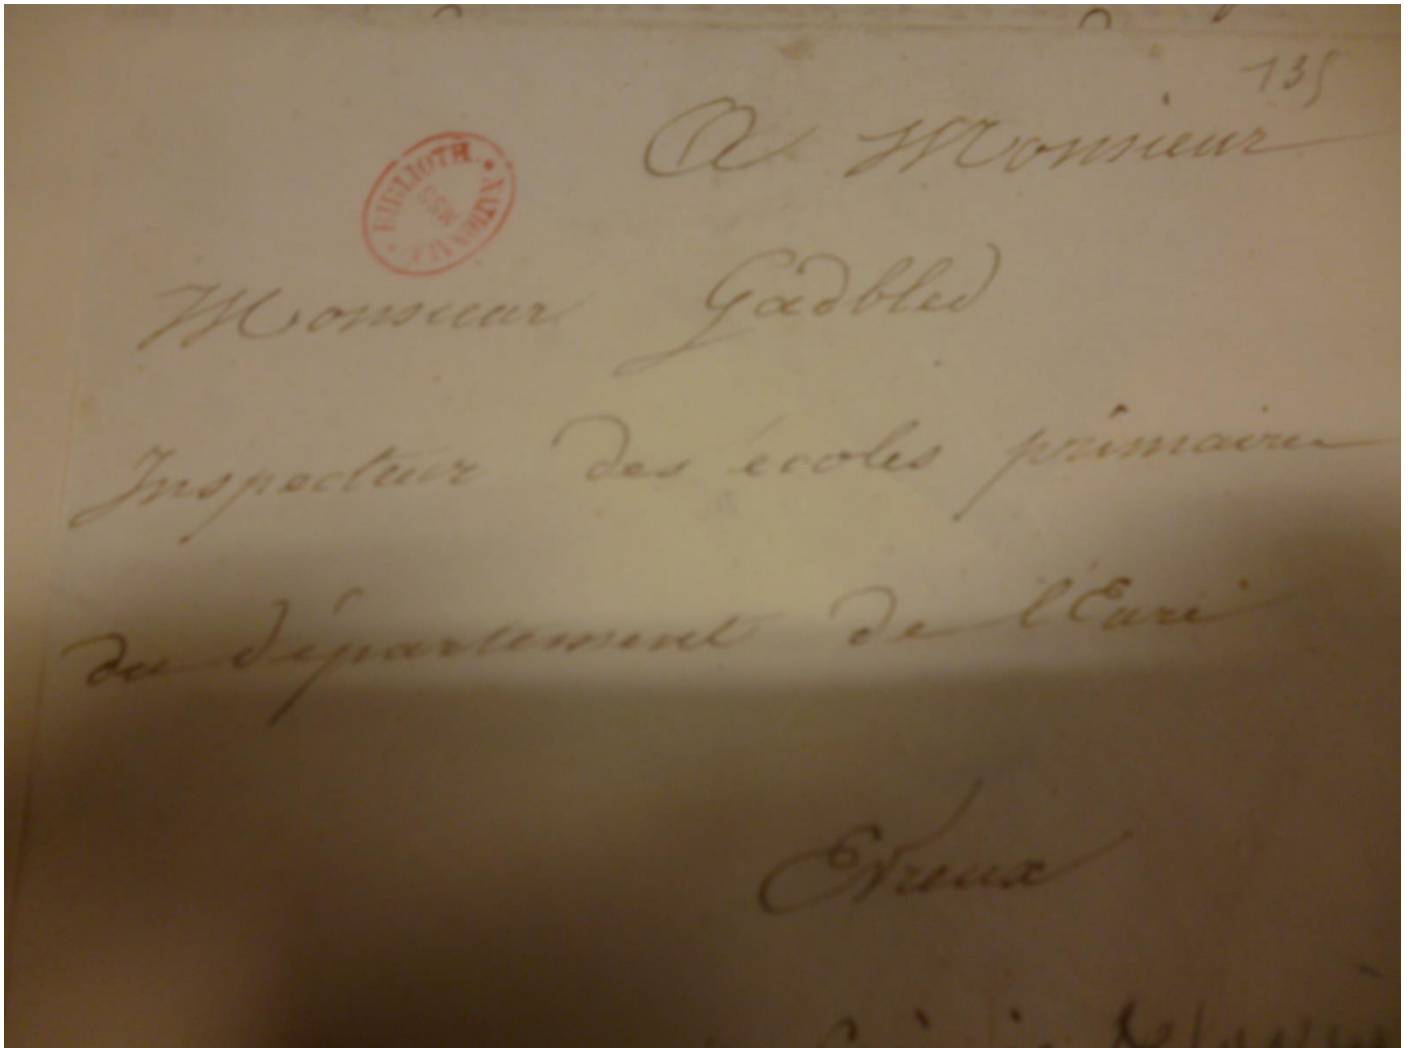 135
A Monsieur
BIBLIOTH. NATIONALE
MSS
Monsieur Gadbled
Inspecteur des écoles primaires
du département de l'Eure
Evreux